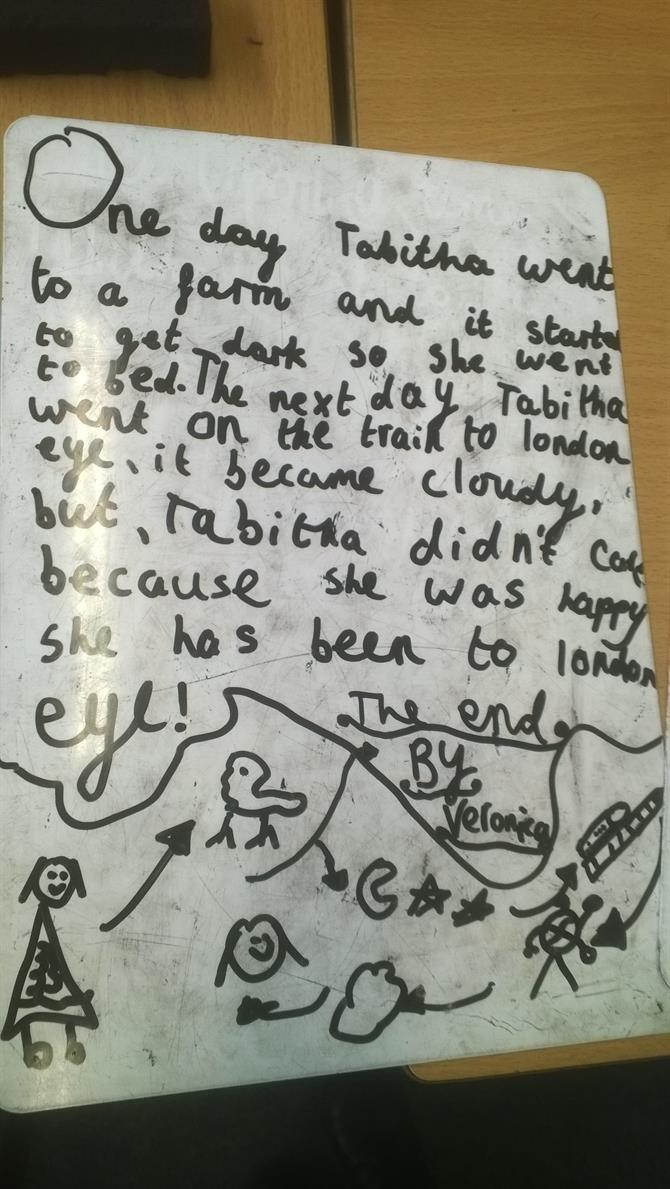 One day Tabitha went
to a farm and it started
to get dark so she went
to bed. The next day Tabitha
went on the train to london
eye, it became cloudy,
but, Tabitha didn't care
because she was happy
she has been to london
eye! The end.
By
Veronica